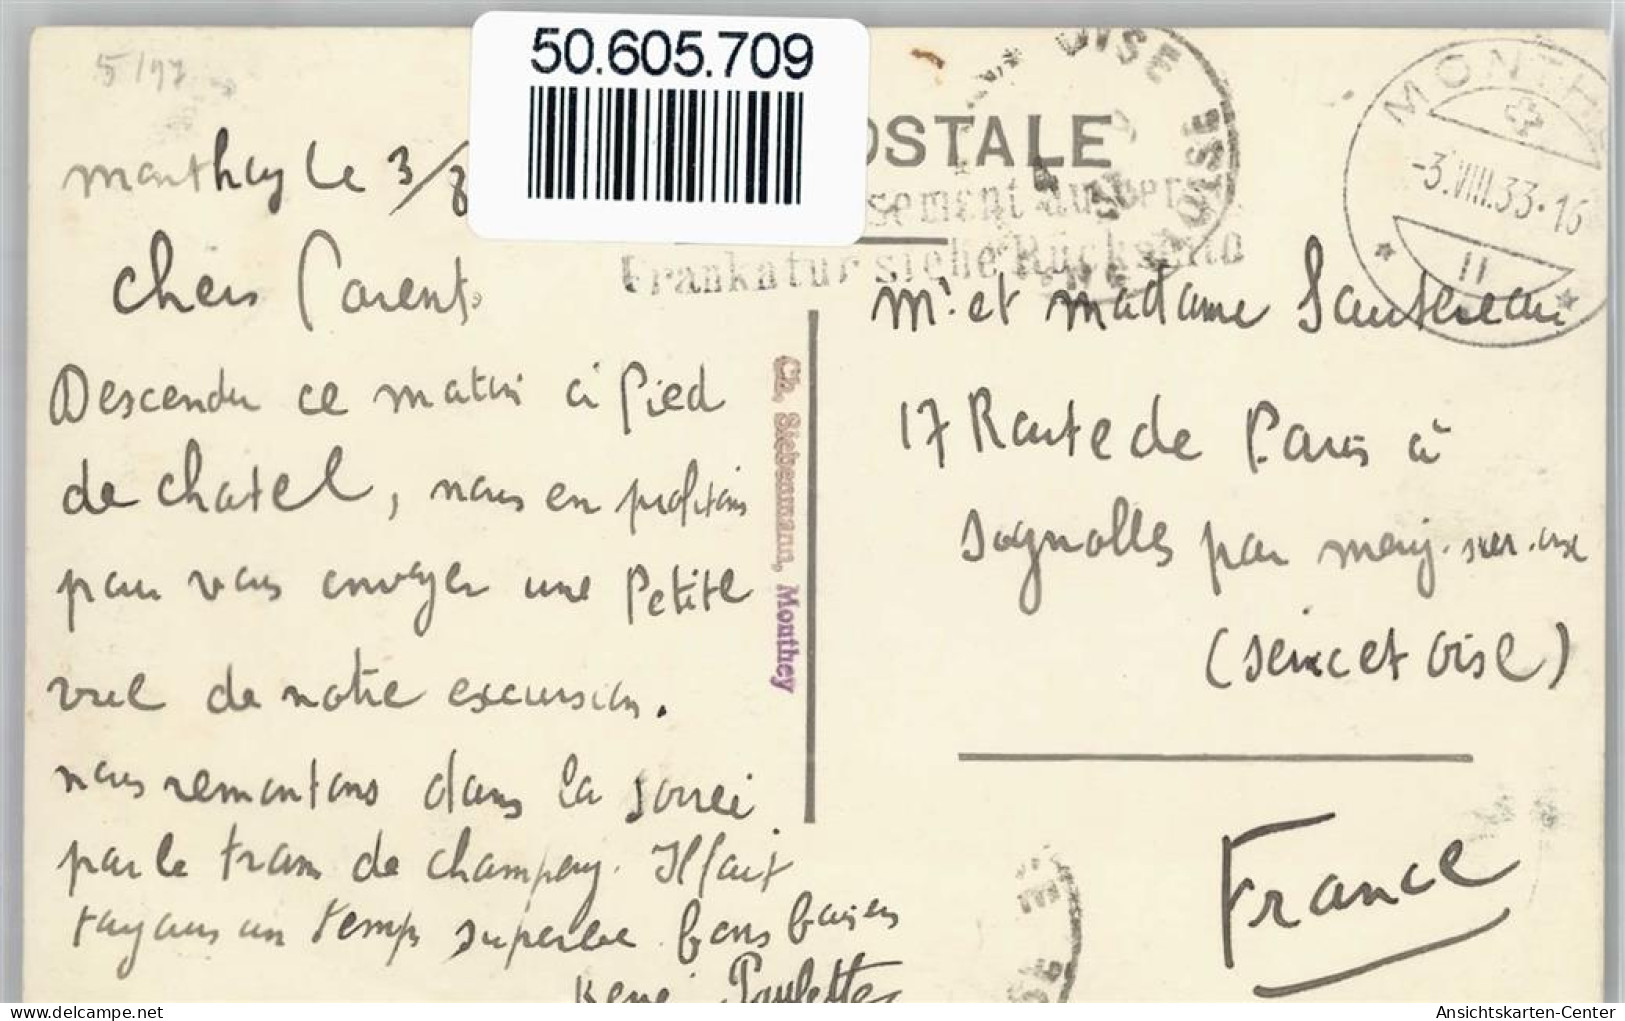 5/97
50.605.709
OSTALE
sement ausser
Frankatur siehe Rückseite
OISE
MONTHEY
-3.VIII.33-16
II
monthey le 3/8
chers Parents
Descendu ce matin à Pied
de chatel, nous en profitons
pour vous envoyer une Petite
vue de notre excursion.
nous remontons dans la soireé
par le tram de champery. Il fait
toujours un temps superbe bons baisers
René Paulette
Ch. Siebenmann, Monthey
Mr et madame Sautereau
17 Route de Paris à
Sognolles par
(seine et oise)
France
Ansichtskarten-Center